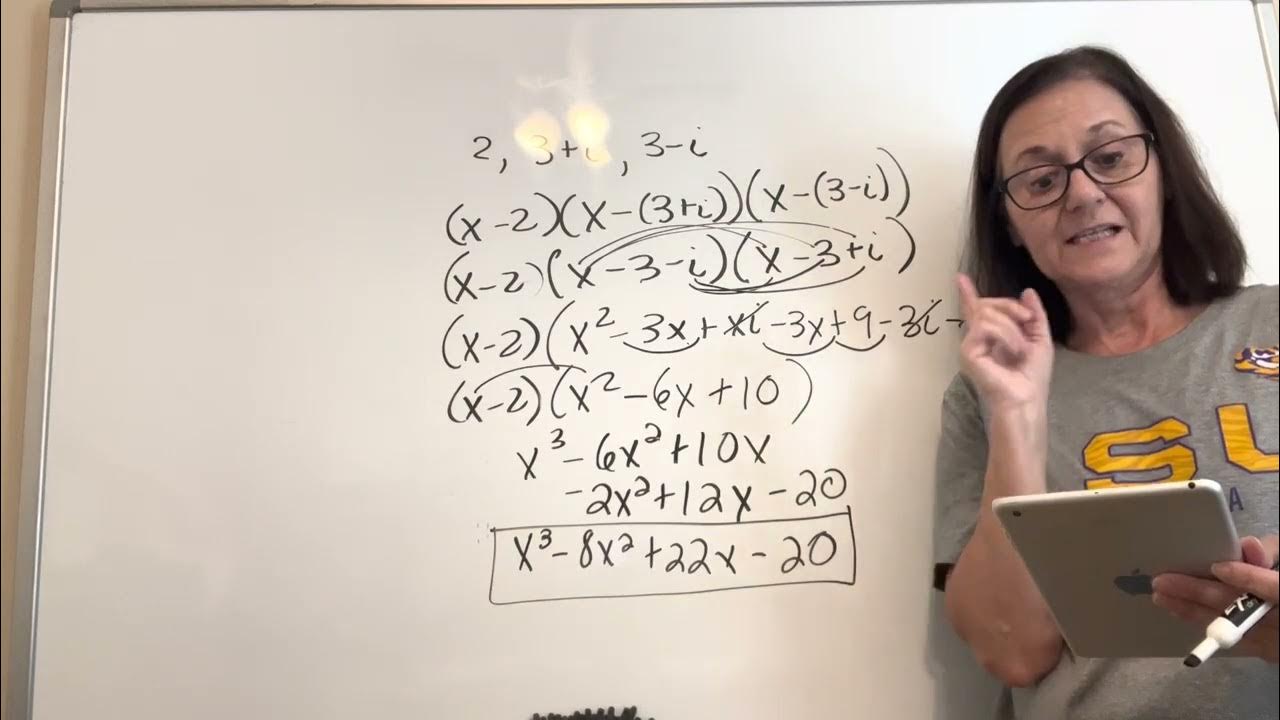 2, 3+i, 3-i
(x-2)(x-(3+i))(x-(3-i))
(x-2)(x-3-i)(x-3+i)
(x-2)(x²-3x+xi-3x+9-3i-
(x-2)(x²-6x+10)
x³-6x²+10x
-2x²+12x-20
x³-8x²+22x-20
SU
A